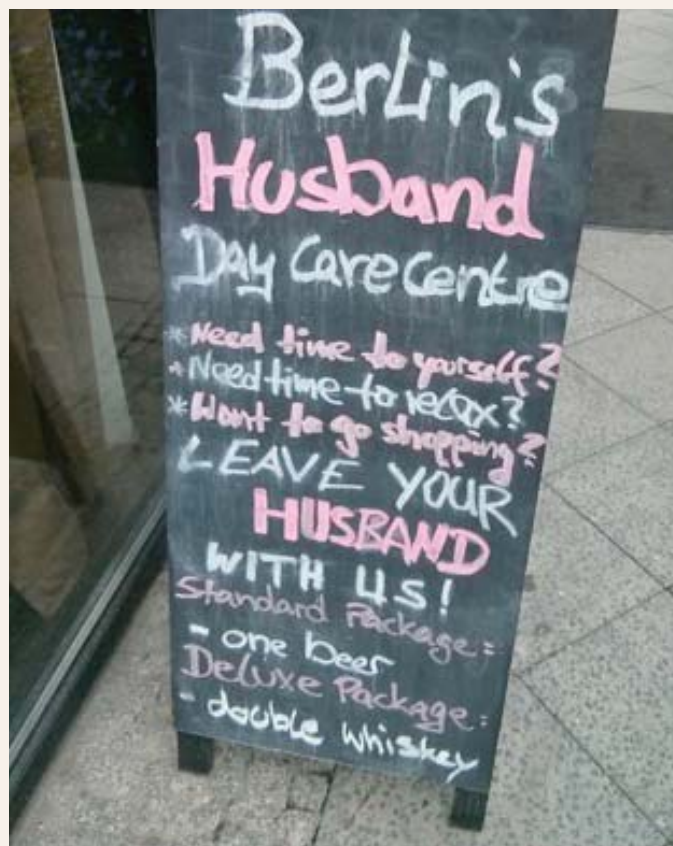 Berlin's
Husband
Day Care Centre
* Need time to yourself?
* Need time to relax?
* Want to go shopping?
LEAVE YOUR
HUSBAND
WITH US!
Standard Package:
- one beer
Deluxe Package:
- double whiskey